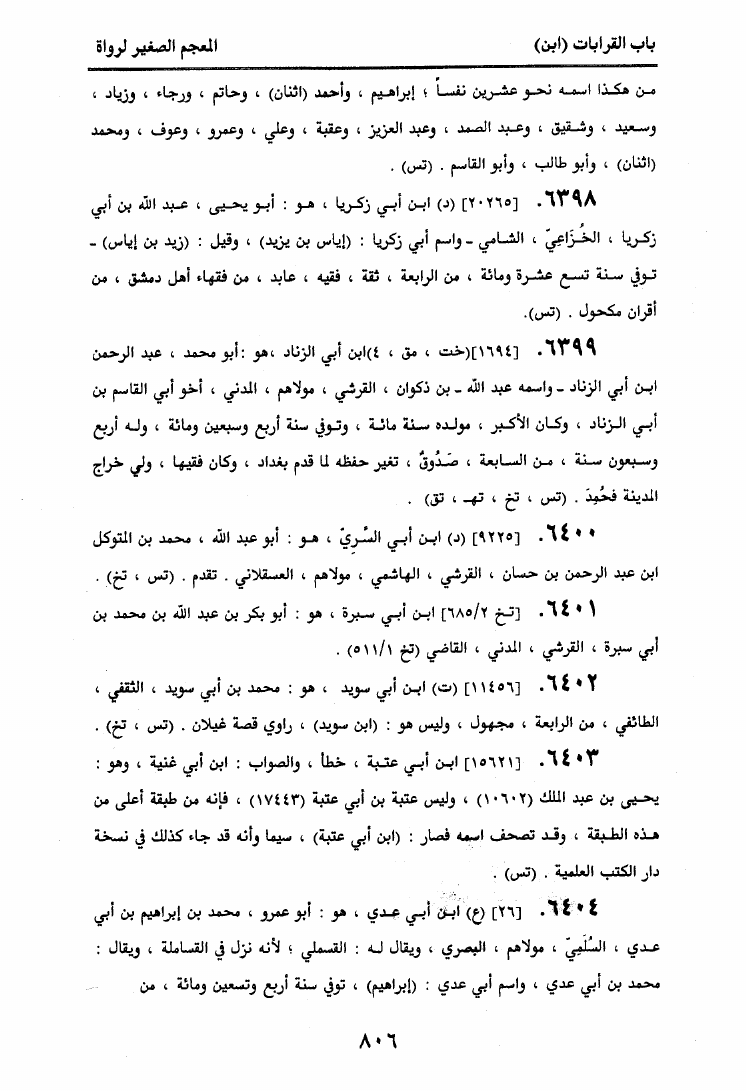 باب القرابات (ابن) المعجم الصغير لرواة
من هكذا اسمه نحو عشرين نفساً ؛ إبراهيم ، وأحمد (اثنان) ، وحاتم ، ورجاء ، وزياد ،
وسعيد ، وشقيق ، وعبد الصمد ، وعبد العزيز ، وعقبة ، وعلي ، وعمرو ، وعوف ، ومحمد
(اثنان) ، وأبو طالب ، وأبو القاسم . (تس) .
٦٣٩٨. [٢٠٢٦٥] (د) ابن أبي زكريا ، هو : أبو يحيى ، عبد الله بن أبي
زكريا ، الخُزَاعِيّ ، الشامي - واسم أبي زكريا : (إياس بن يزيد) ، وقيل : (زيد بن إياس) -
توفي سنة تسع عشرة ومائة ، من الرابعة ، ثقة ، فقيه ، عابد ، من فقهاء أهل دمشق ، من
أقران مكحول . (تس).
٦٣٩٩. [١٦٩٤](خت ، مق ، ٤)ابن أبي الزناد ،هو :أبو محمد ، عبد الرحمن
ابن أبي الزناد - واسمه عبد الله - بن ذكوان ، القرشي ، مولاهم ، المدني ، أخو أبي القاسم بن
أبي الزناد ، وكان الأكبر ، مولده سنة مائة ، وتوفي سنة أربع وسبعين ومائة ، وله أربع
وسبعون سنة ، من السابعة ، صَدُوقٌ ، تغير حفظه لما قدم بغداد ، وكان فقيها ، ولي خراج
المدينة فحُمِدَ . (تس ، تخ ، تهـ ، تق) .
٦٤٠٠. [٩٢٢٥] (د) ابن أبي السَّرِيّ ، هو : أبو عبد الله ، محمد بن المتوكل
ابن عبد الرحمن بن حسان ، القرشي ، الهاشمي ، مولاهم ، العسقلاني . تقدم . (تس ، تخ) .
٦٤٠١. [تخ ٦٨٥/٢] ابن أبي سبرة ، هو : أبو بكر بن عبد الله بن محمد بن
أبي سبرة ، القرشي ، المدني ، القاضي (تخ ٥١١/١) .
٦٤٠٢. [١١٤٥٦] (ت) ابن أبي سويد ، هو : محمد بن أبي سويد ، الثقفي ،
الطائفي ، من الرابعة ، مجهول ، وليس هو : (ابن سويد) ، راوي قصة غيلان . (تس ، تخ) .
٦٤٠٣. [١٥٦٢١] ابن أبي عتبة ، خطأ ، والصواب : ابن أبي غنية ، وهو :
يحيى بن عبد الملك (١٠٦٠٢) ، وليس عتبة بن أبي عتبة (١٧٤٤٣) ، فإنه من طبقة أعلى من
هذه الطبقة ، وقد تصحف اسمه فصار : (ابن أبي عتبة) ، سيما وأنه قد جاء كذلك في نسخة
دار الكتب العلمية . (تس) .
٦٤٠٤. [٢٦] (ع) ابن أبي عدي ، هو : أبو عمرو ، محمد بن إبراهيم بن أبي
عدي ، السُّلَمِيّ ، مولاهم ، البصري ، ويقال له : القسملي ؛ لأنه نزل في القساملة ، ويقال :
محمد بن أبي عدي ، واسم أبي عدي : (إبراهيم) ، توفي سنة أربع وتسعين ومائة ، من
٨٠٦